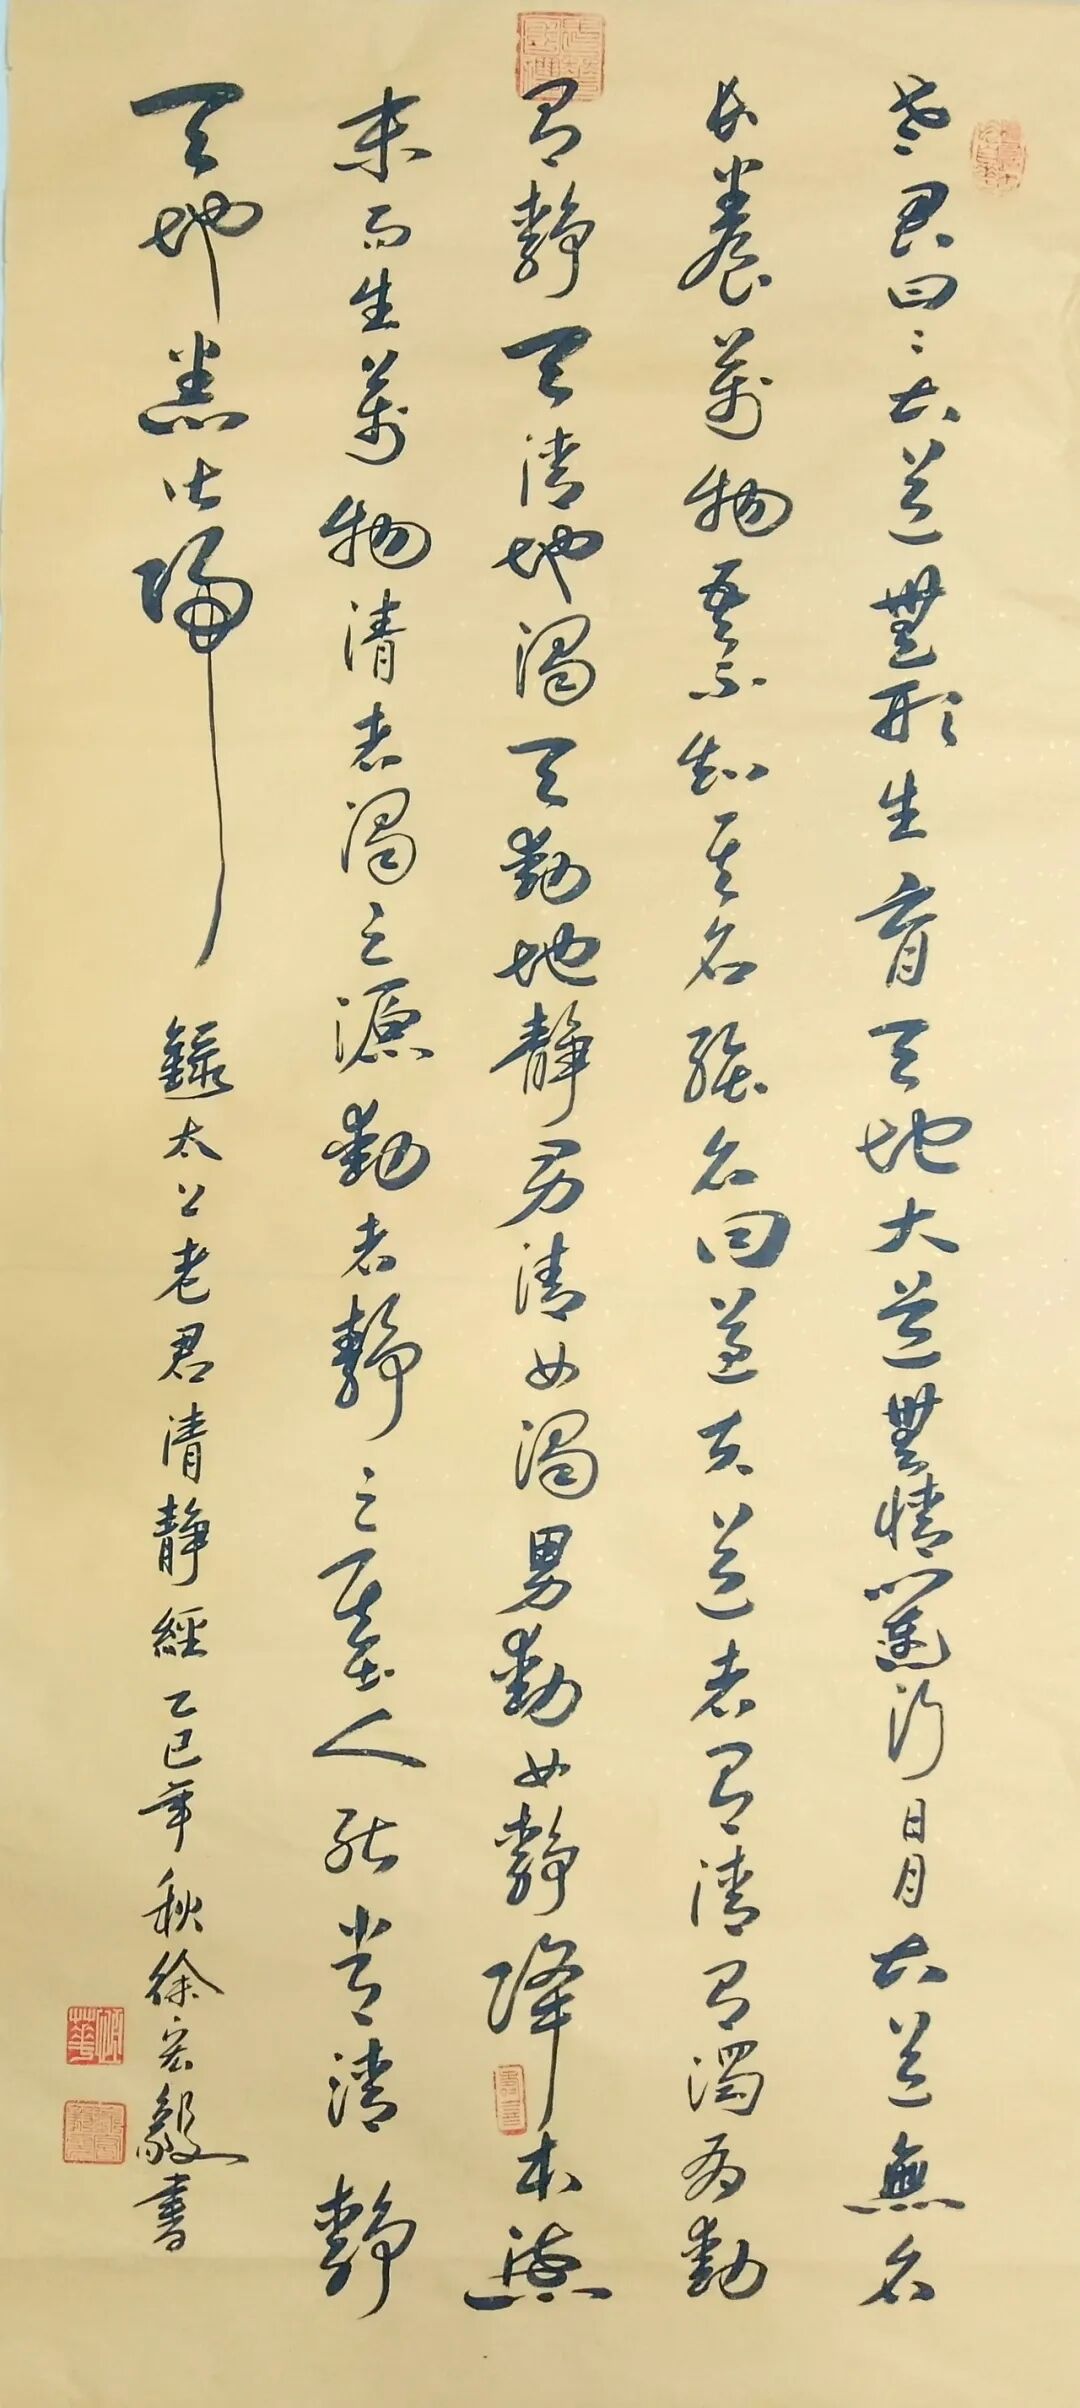 老君曰：大道無形生育天地大道無情運行日月大道無名
長養萬物吾不知其名強名曰道夫道者有清有濁有動
有靜天清地濁天動地靜男清女濁男動女靜降本流
末而生萬物清者濁之源動者靜之基人能常清靜
天地悉皆歸
錄太公老君清靜經乙巳年秋徐宏毅書